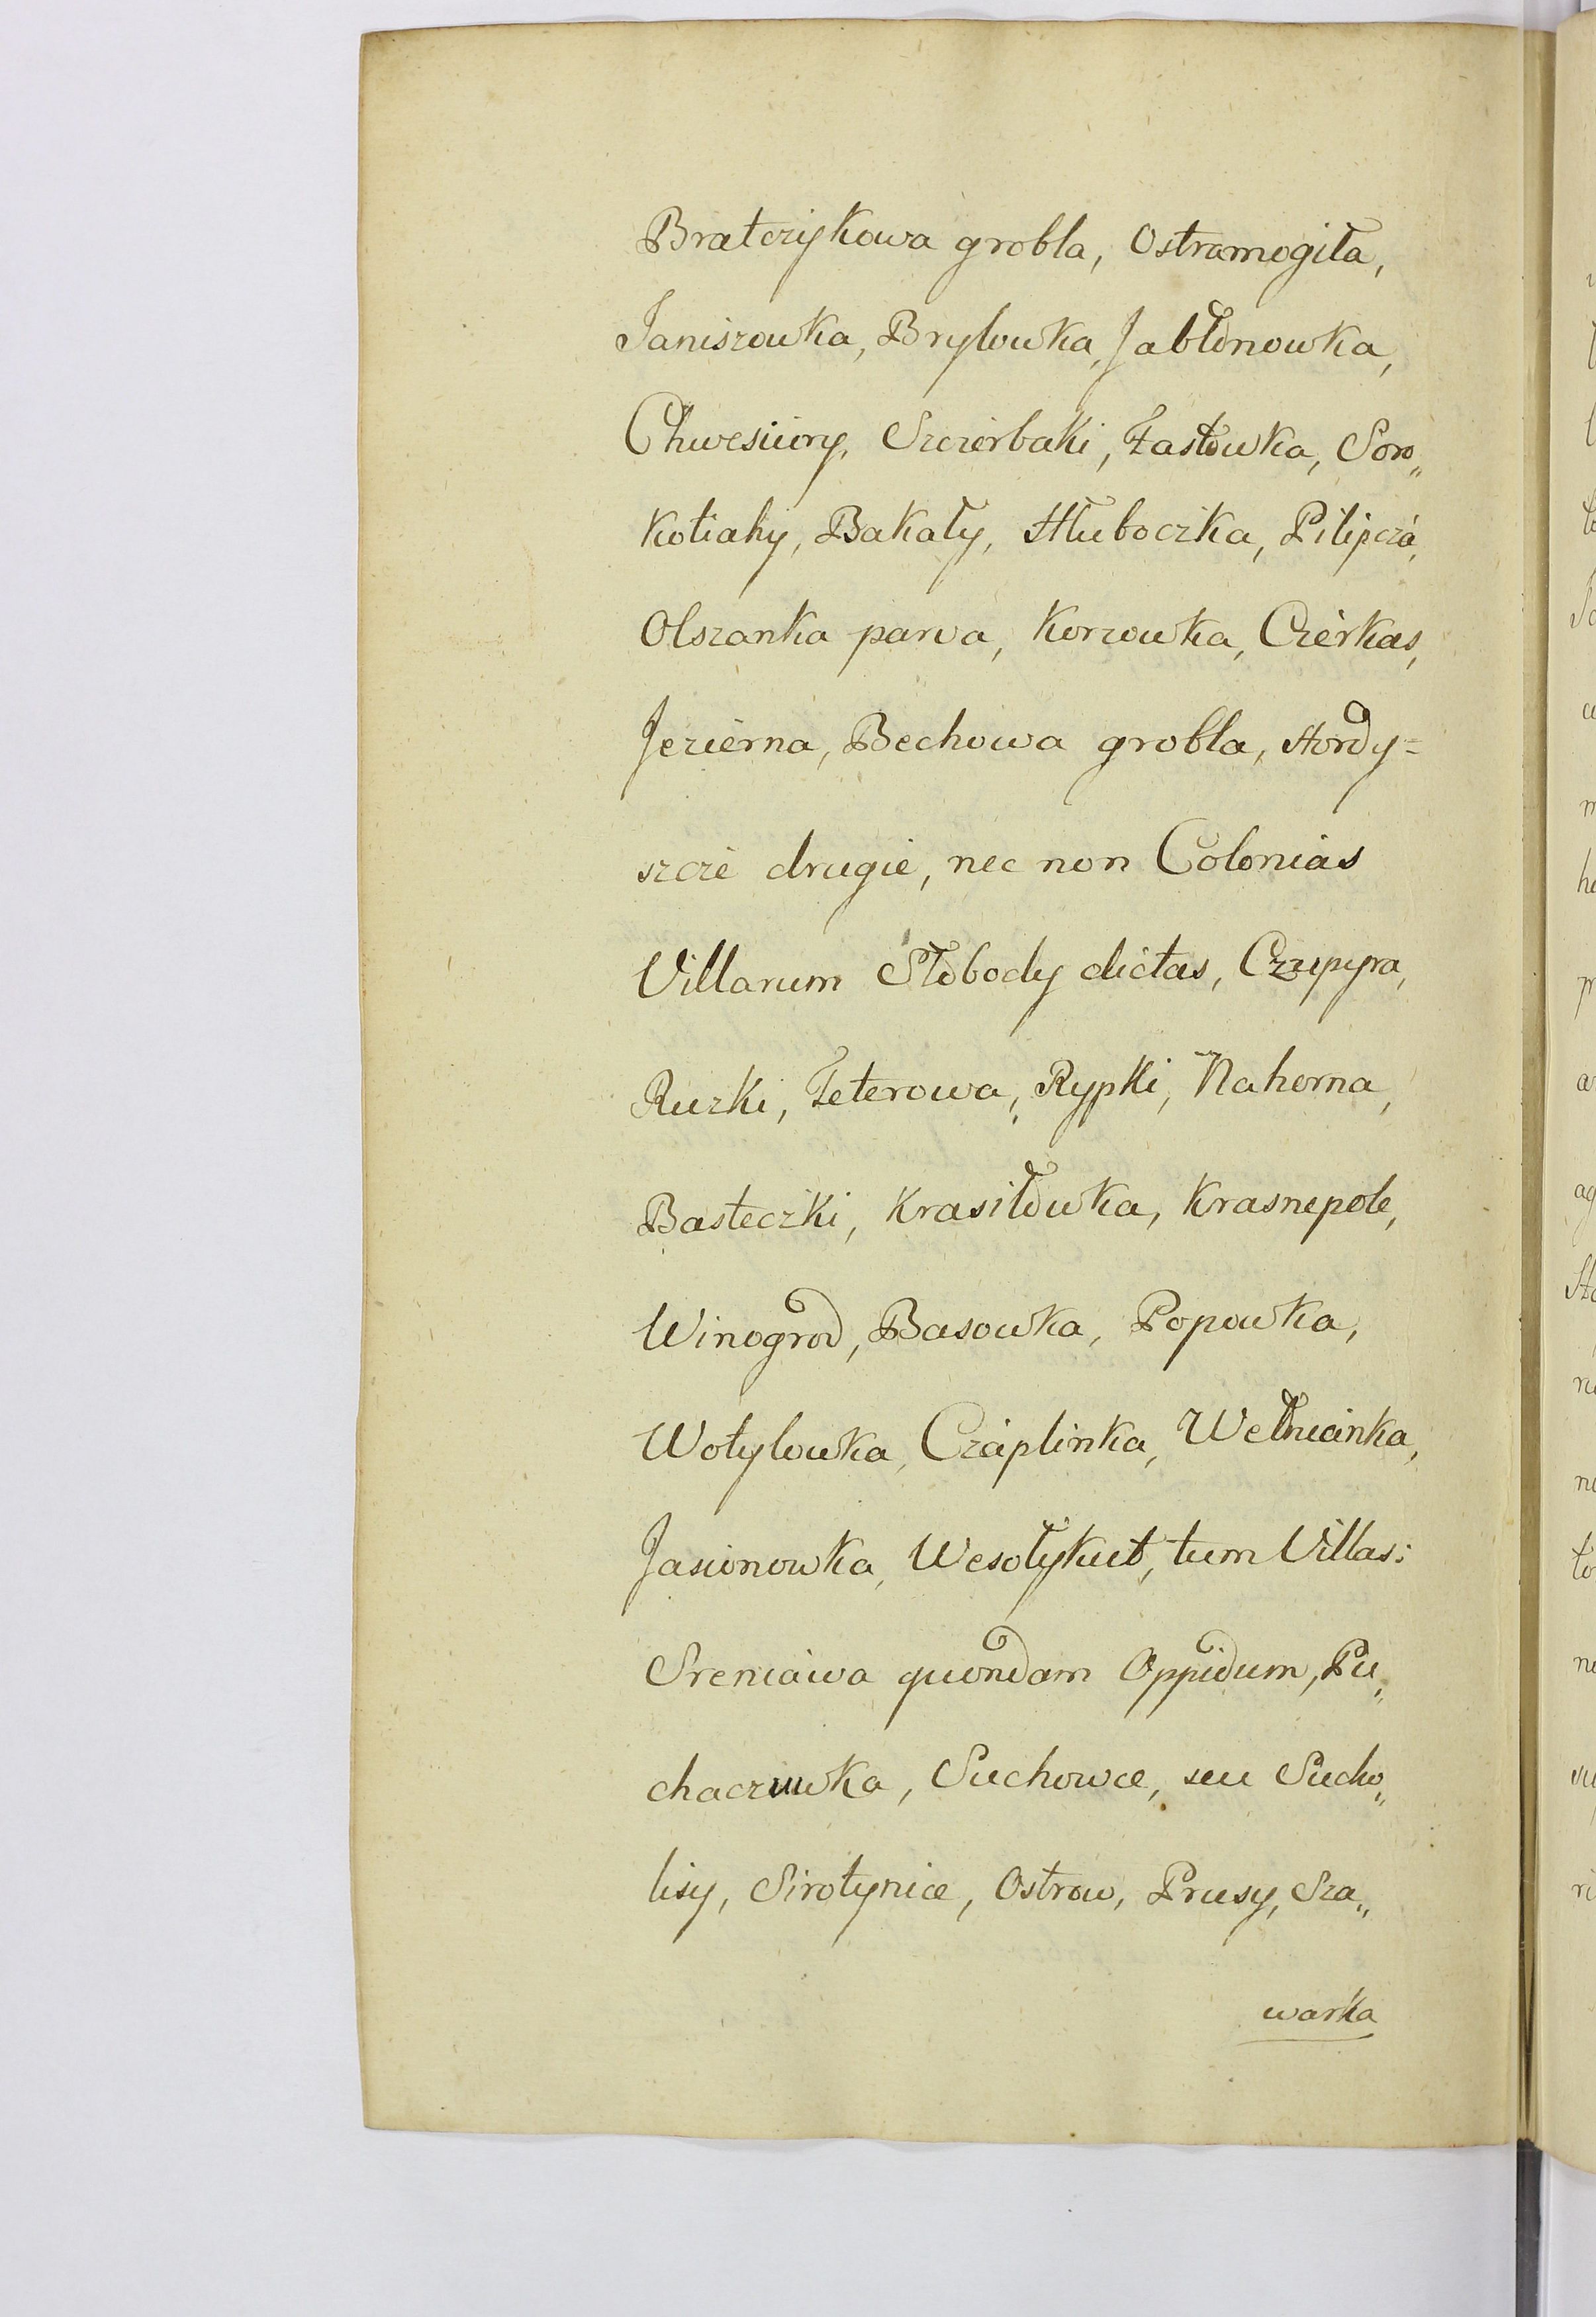 Bratczykowa grobla, Ostramogiła,
Janiszowka, Brylowka, Jabłonowka,
Chwesiury, Szczerbaki, Łastowka, Soro„
kotiahy, Bakały, Hłuboczka, Pilipcza,
Olszanka parva, Korzowka, Czerkas,
Jezierna, Bechowa grobla, Hordy=
szcze drugie, nec non Colonias
Villarum Słobody dictas, Czepyra,
Ruzki, Teterowa, Rypki, Nahorna,
Basteczki, Krasiłowka, Krasnepole,
Winogrod, Basowka, Popowka,
Wotylowka, Czaplinka, Wełnianka,
Jasionowka, Wesołykut, tum Villas:
Sreniawa quondam Oppidum, Pu„
chaczuwka, Suchowce, seu Sucho„
lisy, Sirotynice, Ostrow, Prusy, Sza„
warka